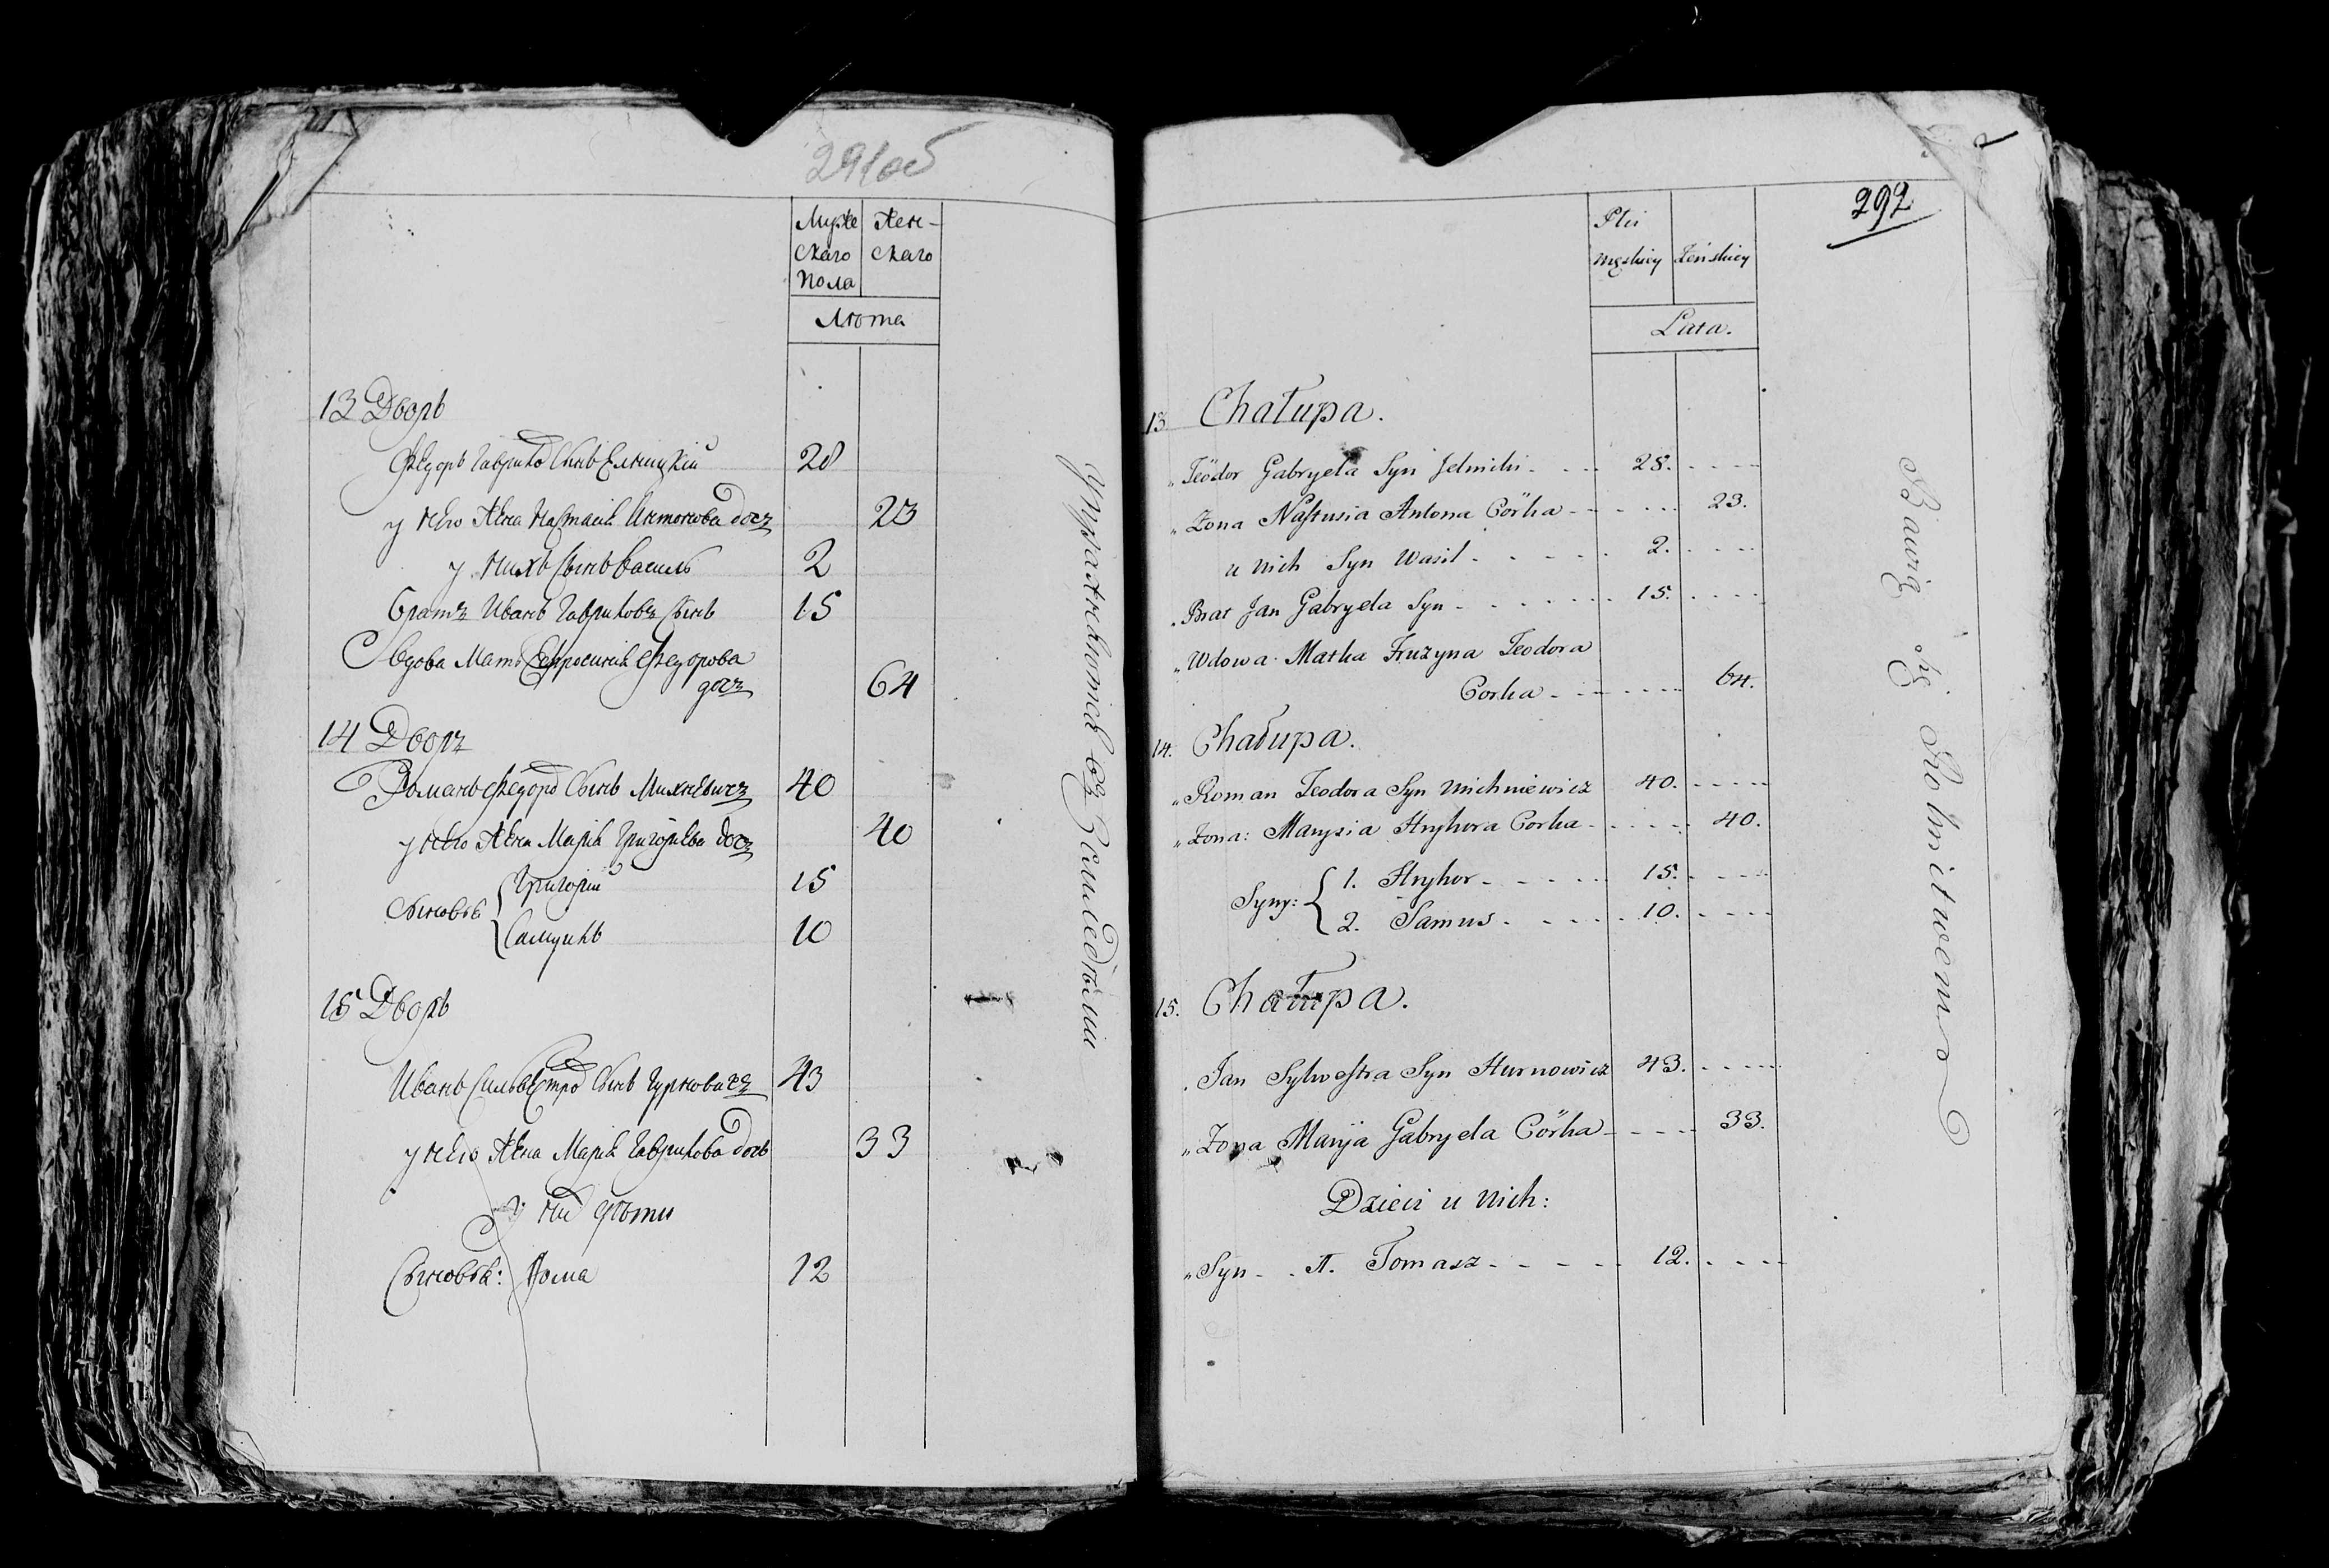 291об
Муже Жен-
скаго скаго
пола
Лѣта
13 Дворъ
Федоръ Гавриловъ Сынъ Ельницкій 28
у него Жена Настасия Антонова дочъ 23
у нихъ Сынъ Василь 2
Братъ Иванъ Гавриловъ Сынъ 15
Вдова Мать Ефросиния Федорова
дочъ 64
14 Дворъ
Романъ Федоровъ Сынъ Михневичъ 40
у него Жена Марія Григорьева дочъ 40
Сыновья { Григорій 15
Самуилъ 10
15 Дворъ
Иванъ Сильвестровъ Сынъ Гурновичъ 43
у него Жена Марія Гаврилова дочь 33
У них дѣти
Сыновья: Фома 12
Упражняются въ Земледѣліи
292
Płci
męskiey Żeńskiey
Lata.
13. Chałupa.
„ Teodor Gabryela Syn Jelnicki - - - 28. - - - -
„ Żona Nastusia Antona Córka - - - - - 23.
u nich Syn Wasil - - - - - 2. - - - -
„ Brat Jan Gabryela Syn - - - - - 15. - - - -
„ Wdowa Matka Fruzyna Teodora
Corka - - - - - - 64.
14. Chałupa.
„ Roman Teodora Syn Michniewicz 40. - - - -
„ Żona: Marysia Hryhora Corka - - - - - 40.
Syny: { 1. Hryhor - - - - - 15. - - - -
2. Samus - - - - - 10. - - - -
15. Chałupa.
„ Jan Sylwestra Syn Hurnowicz 43. - - - -
„ Żona Marija Gabryela Córka - - - - 33.
Dzieci u nich:
„ Syn - - 1. Tomasz - - - - - 12. - - - -
Bawią się Rolnitwemo